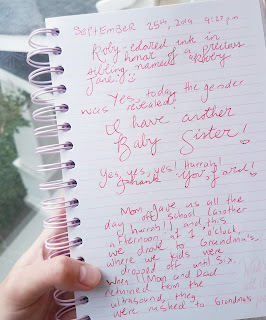 SEPTEMBER 25th, 2019 4:27 pm
Ruby-colored ink in
honor of a precious
sibling named Ruby
Yes, today the gender
was revealed.
I have another
Baby Sister!
Yes, yes, yes! Hurrah!
Thank You, Lord!
Mom gave us all the
day off school (another
hurrah!), and this
afternoon, at 1 o'clock,
we drove to Grandma's,
where we kids were
dropped off until six.
When Mom and Dad
returned from the
ultrasound, they
were rushed to Grandma's